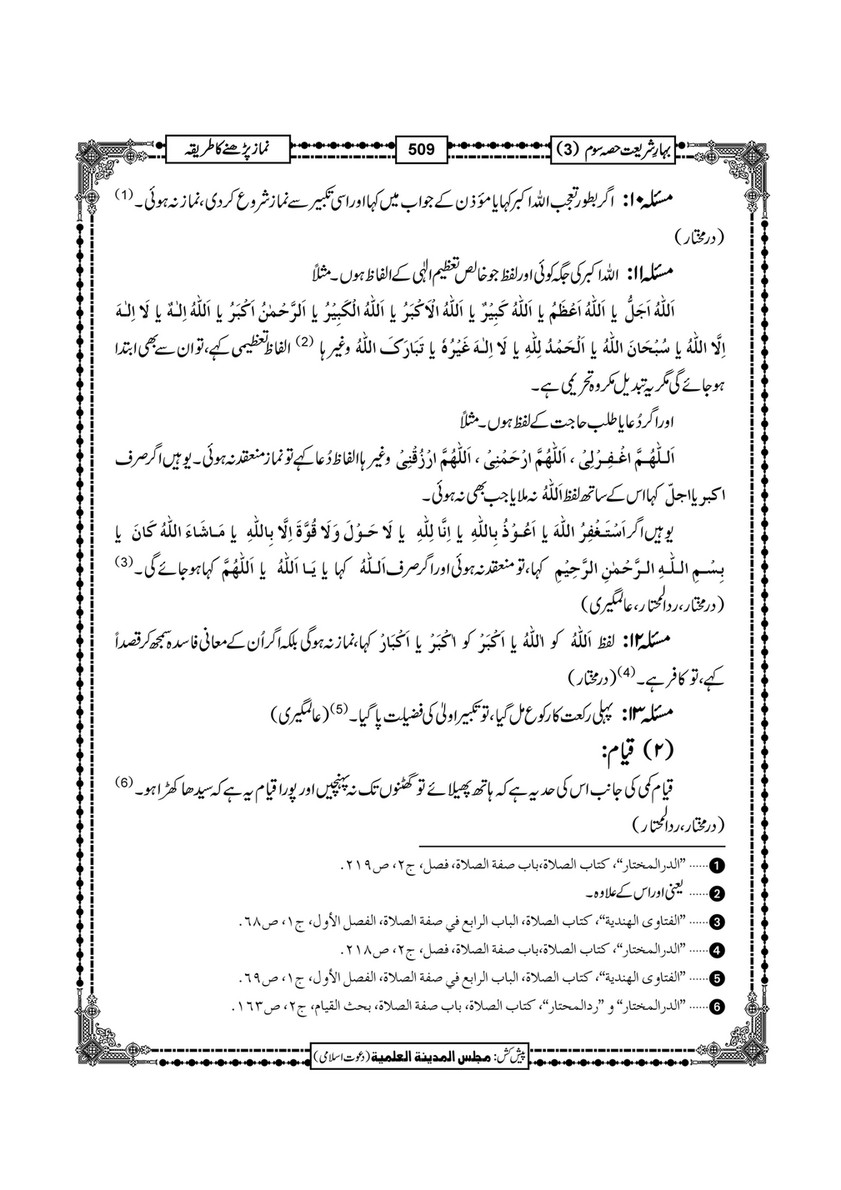 بہارِ شریعت حصہ سوم (3)
509
نماز پڑھنے کا طریقہ
مسئلہ ۱۰: اگر بطور تعجب اللہ اکبر کہا یا مؤذن کے جواب میں کہا اور اسی تکبیر سے نماز شروع کر دی، نماز نہ ہوئی۔ (1)
(درمختار)
مسئلہ ۱۱: اللہ اکبر کی جگہ کوئی اور لفظ جو خالص تعظیم الٰہی کے الفاظ ہوں۔ مثلاً
اَللّٰہُ اَجَلُّ یا اَللّٰہُ اَعْظَمُ یا اَللّٰہُ کَبِیْرٌ یا اَللّٰہُ الْاَکْبَرُ یا اَللّٰہُ الْکَبِیْرُ یا اَلرَّحْمٰنُ اَکْبَرُ یا اَللّٰہُ اِلٰـہٌ یا لَا اِلٰـہَ
اِلَّا اللّٰہُ یا سُبْحَانَ اللّٰہُ یا اَلْحَمْدُ لِلّٰہِ یا لَا اِلٰـہَ غَیْرُہٗ یا تَبَارَکَ اللّٰہُ وغیرہا (2) الفاظ تعظیمی کہے، تو ان سے بھی ابتدا
ہو جائے گی مگر یہ تبدیل مکروہ تحریمی ہے۔
اور اگر دُعا یا طلب حاجت کے لفظ ہوں۔ مثلاً
اَللّٰہُمَّ اغْفِرْلِیْ ، اَللّٰہُمَّ ارْحَمْنِیْ ، اَللّٰہُمَّ ارْزُقْنِیْ وغیرہا الفاظ دُعا کہے تو نماز منعقد نہ ہوئی۔ یوہیں اگر صرف
اکبر یا اجلّ کہا اس کے ساتھ لفظ اَللّٰہُ نہ ملایا جب بھی نہ ہوئی۔
یوہیں اگر اَسْتَغْفِرُ اللّٰہَ یا اَعُوْذُ بِاللّٰہِ یا اِنَّا لِلّٰہِ یا لَا حَوْلَ وَلَا قُوَّۃَ اِلَّا بِاللّٰہِ یا مَاشَاءَ اللّٰہُ کَانَ یا
بِسْمِ اللّٰہِ الرَّحْمٰنِ الرَّحِیْمِ کہا، تو منعقد نہ ہوئی اور اگر صرف اَللّٰہُ کہا یا یَا اَللّٰہُ یا اَللّٰہُمَّ کہا ہو جائے گی۔ (3)
(درمختار، ردالمحتار، عالمگیری)
مسئلہ ۱۲: لفظ اَللّٰہُ کو اٰللّٰہُ یا اَکْبَرْ کو اٰکْبَرْ یا اَکْبَارْ کہا، نماز نہ ہوگی بلکہ اگر اُن کے معانی فاسدہ سمجھ کر قصداً
کہے، تو کافر ہے۔ (4) (درمختار)
مسئلہ ۱۳: پہلی رکعت کا رکوع مل گیا، تو تکبیر اولیٰ کی فضیلت پا گیا۔ (5) (عالمگیری)
(۲) قیام:
قیام کمی کی جانب اس کی حد یہ ہے کہ ہاتھ پھیلائے تو گھٹنوں تک نہ پہنچیں اور پورا قیام یہ ہے کہ سیدھا کھڑا ہو۔ (6)
(درمختار، ردالمحتار)
1 ...... "الدرالمختار"، کتاب الصلاة،باب صفة الصلاة، فصل، ج۲، ص۲۱۹.
2 ...... یعنی اور اس کے علاوہ۔
3 ...... "الفتاوی الھندیة"، کتاب الصلاة، الباب الرابع في صفة الصلاة، الفصل الأول، ج۱، ص۶۸.
4 ...... "الدرالمختار"، کتاب الصلاة،باب صفة الصلاة، فصل، ج۲، ص۲۱۸.
5 ...... "الفتاوی الھندیة"، کتاب الصلاة، الباب الرابع في صفة الصلاة، الفصل الأول، ج۱، ص۶۹.
6 ...... "الدرالمختار" و "ردالمحتار"، کتاب الصلاة، باب صفة الصلاة، بحث القیام، ج۲، ص۱۶۳.
پیش کش: مجلس المدینة العلمیة (دعوت اسلامی)